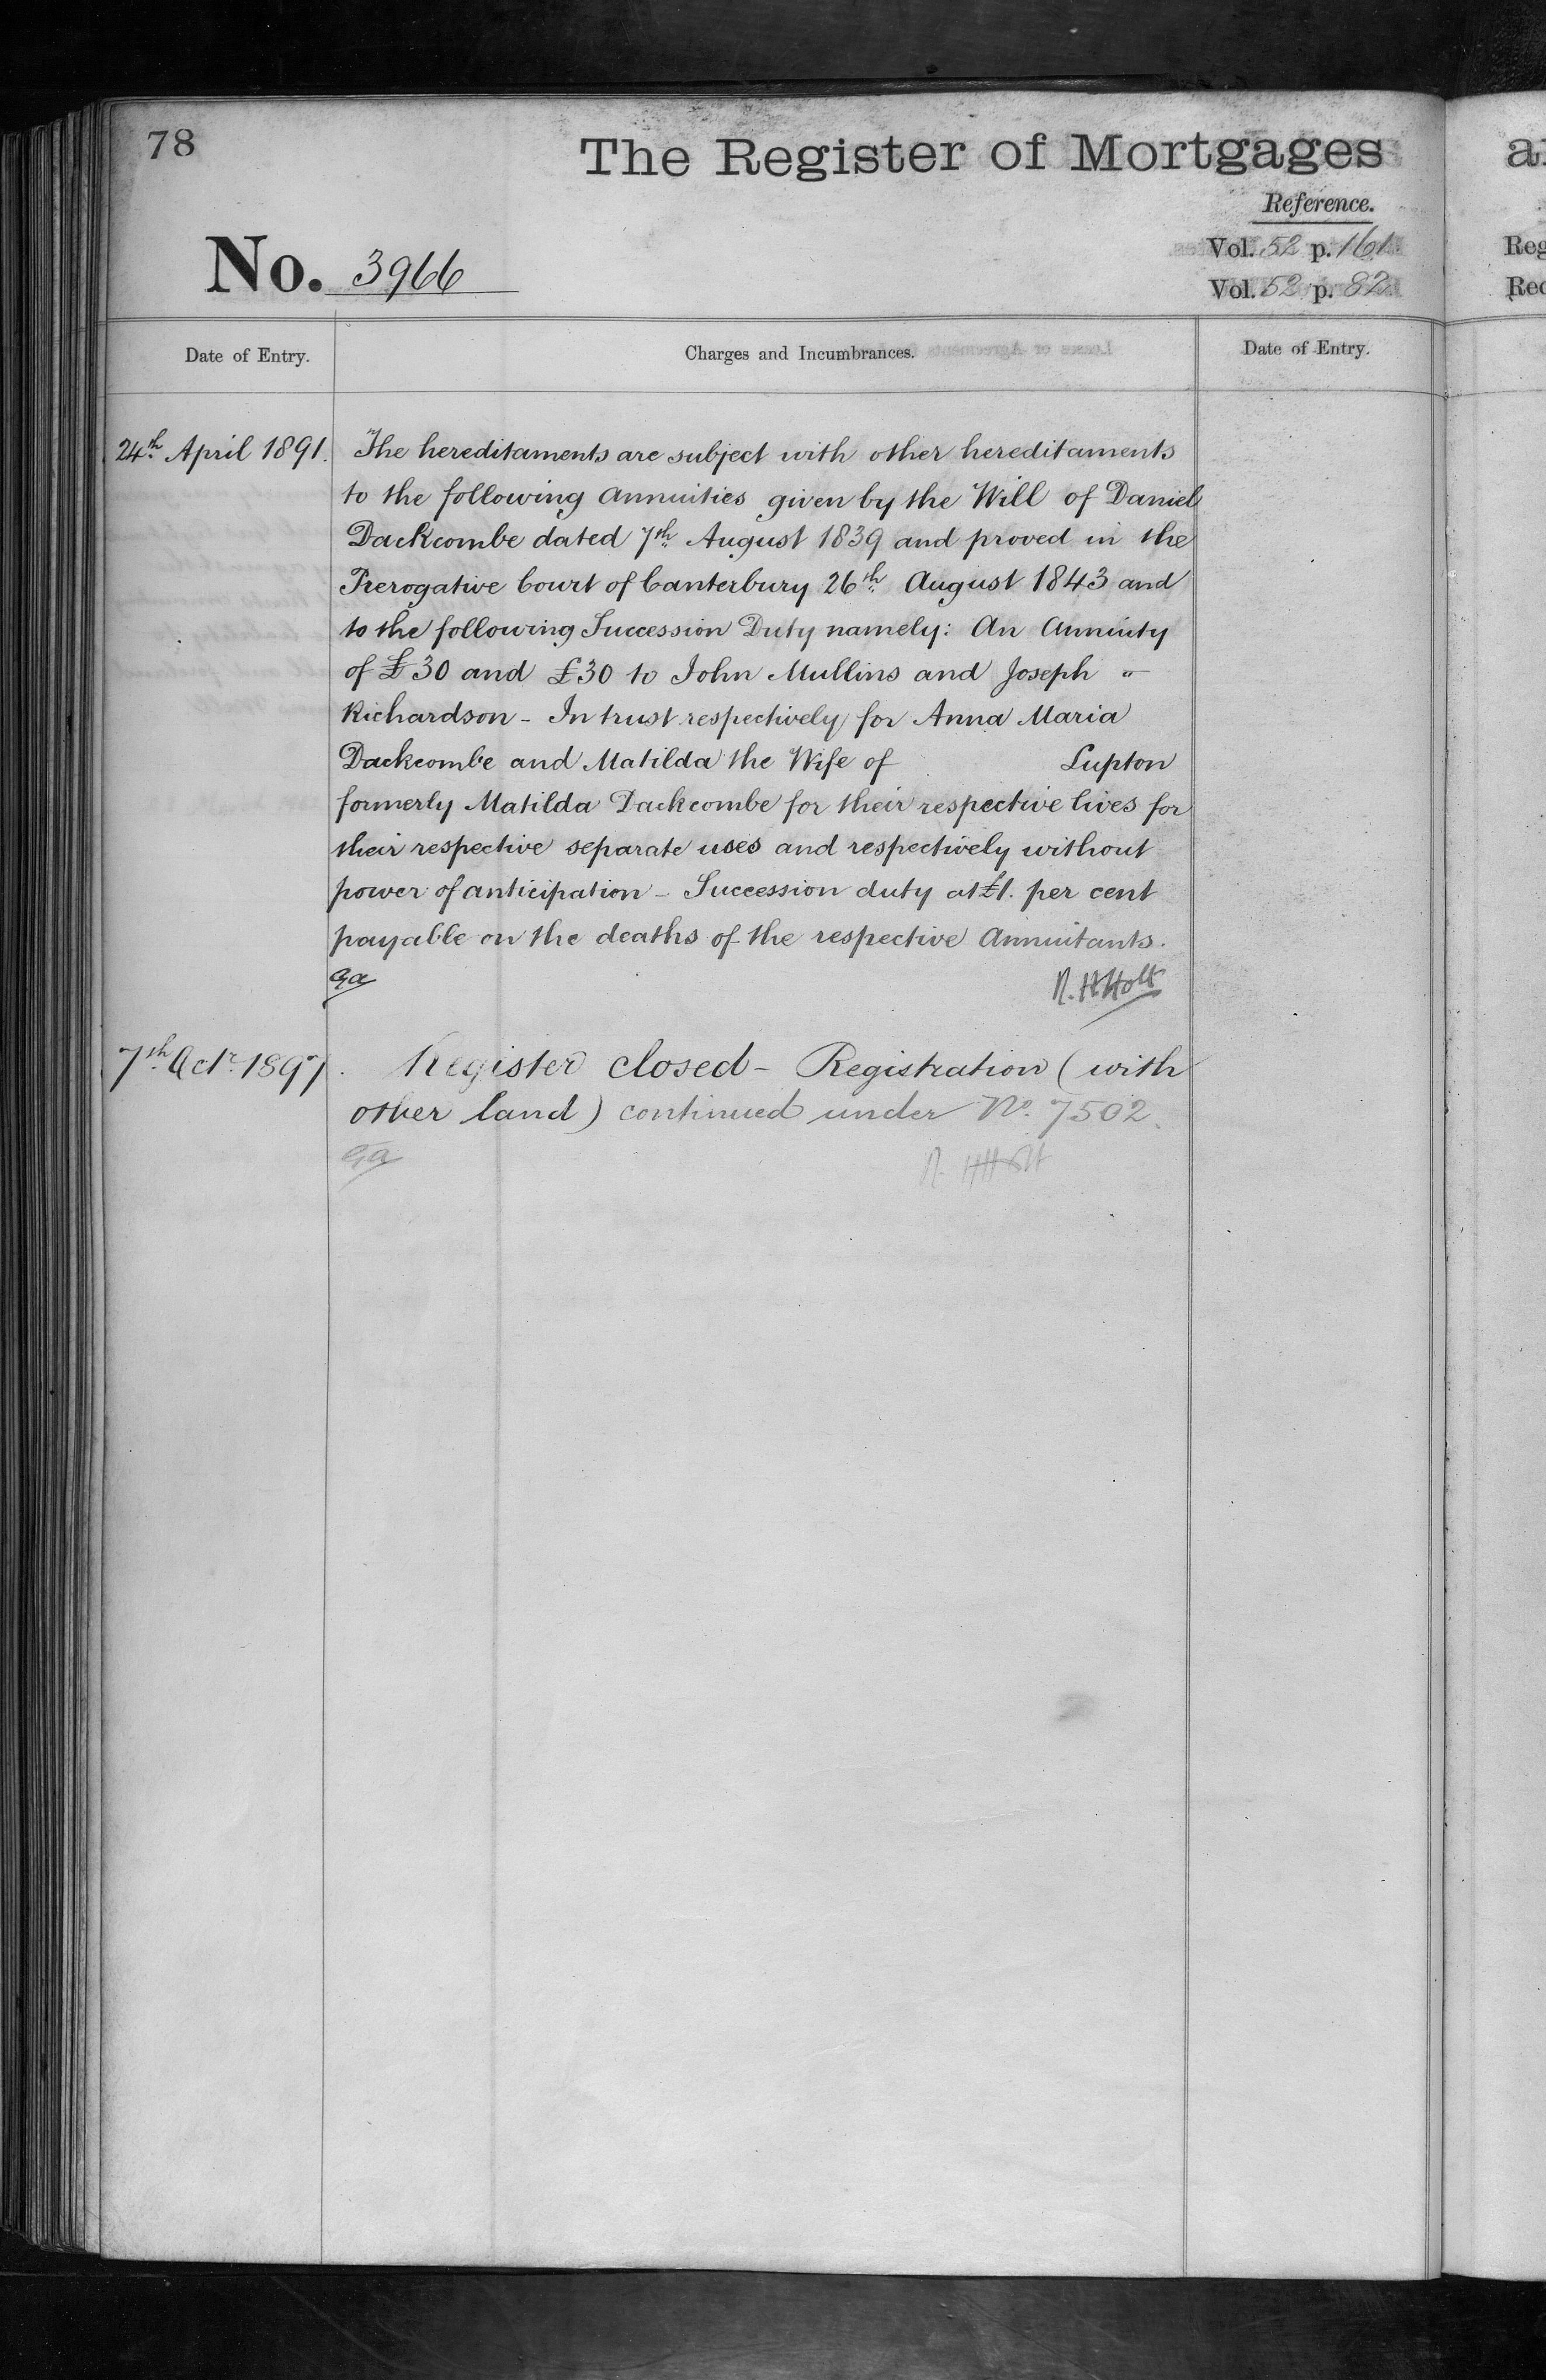 78
The Register of Mortgages
Reference.
No. 3966
Vol. 52 p. 161
Vol. 52 p. 82
Date of Entry.
Charges and Incumbrances.
Date of Entry.
24th April 1891.
The hereditaments are subject with other hereditaments
to the following annuities given by the Will of Daniel
Dackcombe dated 7th August 1839 and proved in the
Prerogative Court of Canterbury 26th August 1843 and
to the following Succession Duty namely: An Annuity
of £30 and £30 to John Mullins and Joseph "
Richardson - In trust respectively for Anna Maria
Dackcombe and Matilda the Wife of Lupton
formerly Matilda Dackcombe for their respective lives for
their respective separate uses and respectively without
power of anticipation - Succession duty at £1. per cent
payable on the deaths of the respective Annuitants.
Ga R.H Holt
7th Octr. 1897.
Register closed - Registration (with
other land) continued under No. 7502.
Ga R. H Holt
Reg